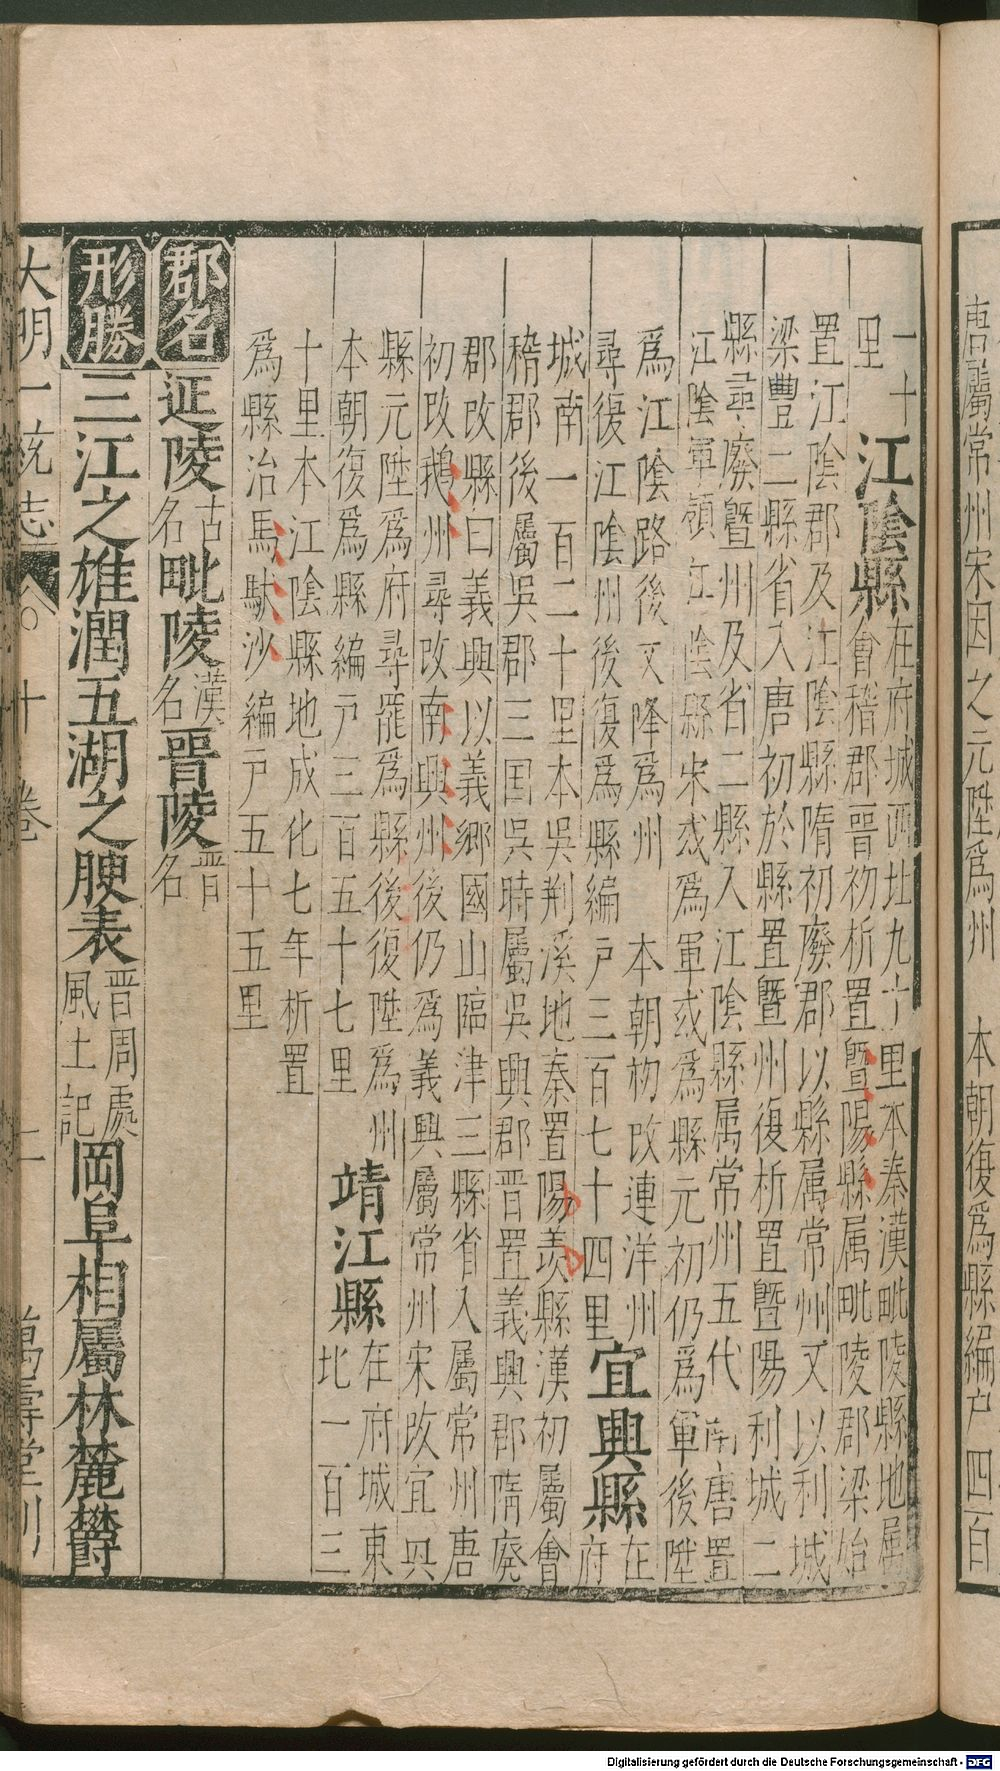 唐屬常州宋因之元陞爲州　本朝復爲縣編户四百
一十
里
江陰縣
在府城西北九十里本秦漢毗陵縣地属
會稽郡晉初析置暨陽縣属毗陵郡梁始
置江陰郡及江陰縣隋初廢郡以縣属常州又以利城
梁豐二縣省入唐初於縣置暨州復析置暨陽利城二
縣尋廢暨州及省二縣入江陰縣属常州五代南唐置
江陰軍領江陰縣宋或爲軍或爲縣元初仍爲軍後陞
爲江陰路後又降爲州　本朝初改連洋州
尋復江陰州後復爲縣編戸三百七十四里
宜興縣
在
府
城南一百二十里本吳荆溪地秦置陽羡縣漢初屬會
稽郡後屬吳郡三国吳時屬吳興郡晋置義興郡隋廢
郡改縣曰義興以義鄉國山臨津三縣省入屬常州唐
初改鵝州尋改南興州後仍爲義興屬常州宋改宜興
縣元陞爲府尋罷爲縣後復陞爲州
本朝復爲縣編戸三百五十七里
靖江縣
在府城東
北一百三
十里本江陰縣地成化七年析置
爲縣治馬馱沙編戸五十五里
郡名 延陵 古名 毗陵 漢名 晋陵 晋名
形勝 三江之雄潤五湖之腴表 晋周處風土記 岡阜相屬林麓欝
大明一統志 十卷 二 萬壽堂刋
Digitalisierung gefördert durch die Deutsche Forschungsgemeinschaft - DFG